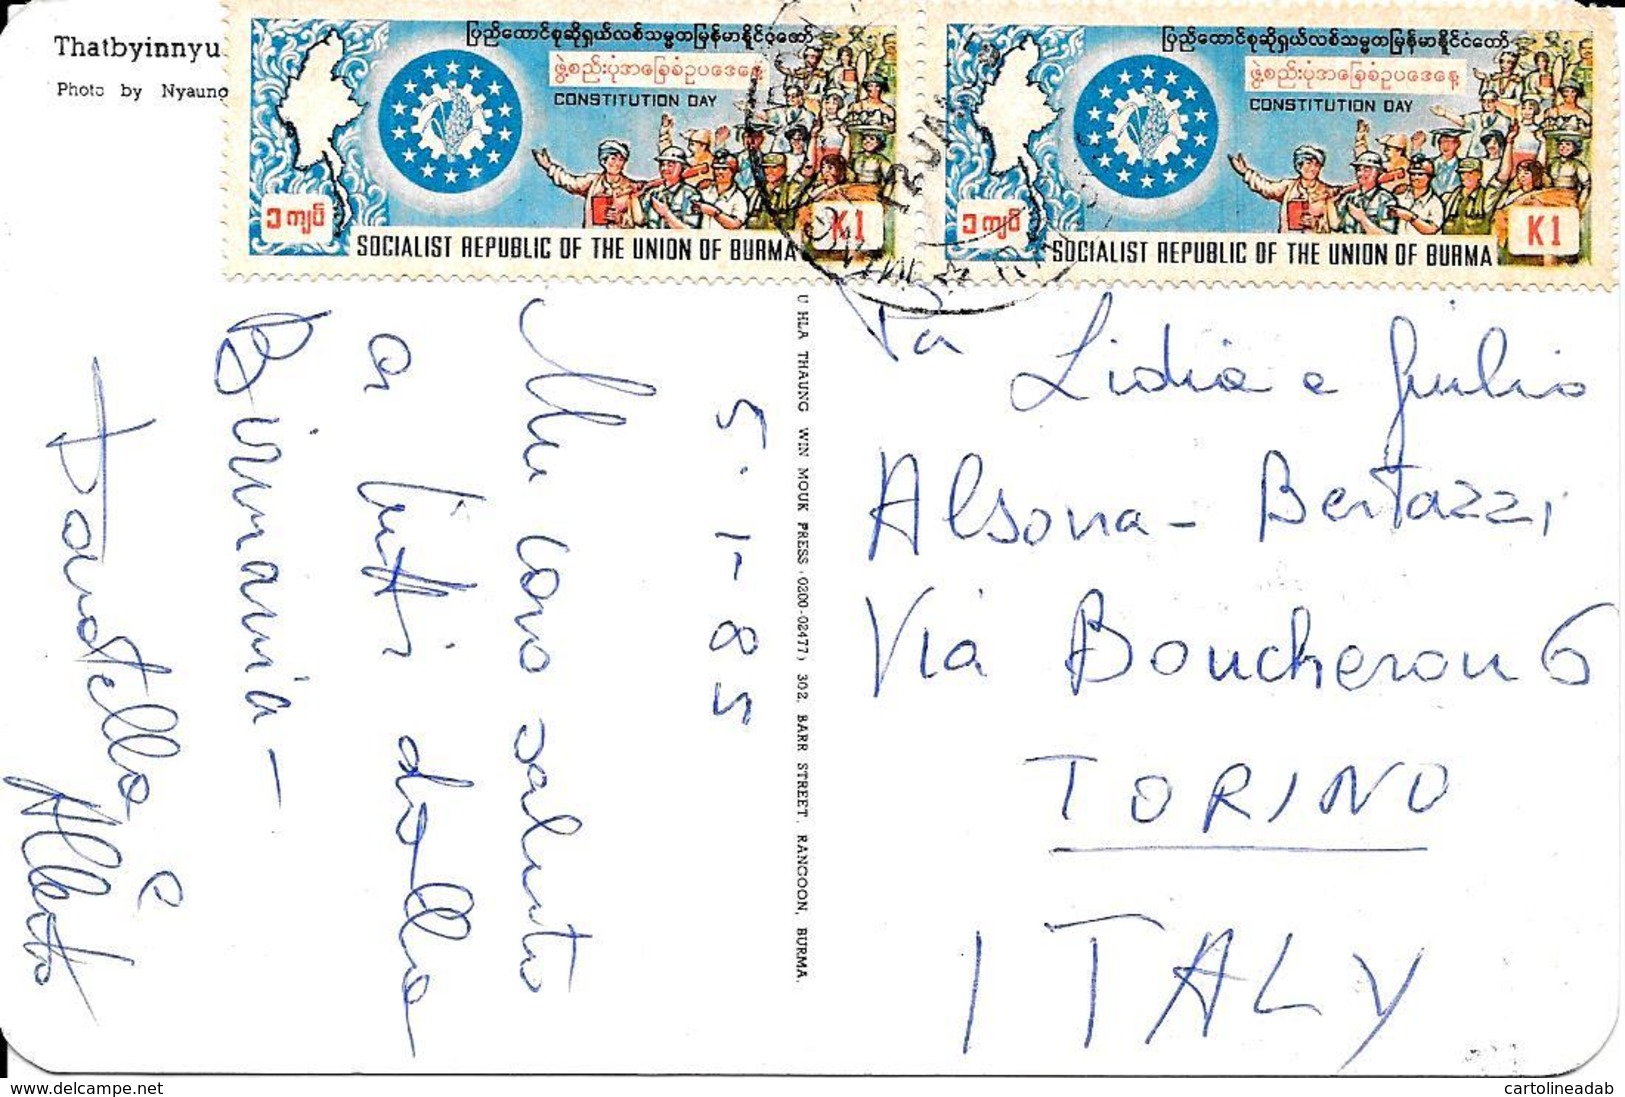 Thatbyinnyu
Photo by Nyaung
ပြည်ထောင်စုဆိုရှယ်လစ်သမ္မတမြန်မာနိုင်ငံတော်
ဖွဲ့စည်းပုံအခြေခံဥပဒေနေ့
CONSTITUTION DAY
၁ ကျပ်
K1
SOCIALIST REPUBLIC OF THE UNION OF BURMA
ပြည်ထောင်စုဆိုရှယ်လစ်သမ္မတမြန်မာနိုင်ငံတော်
ဖွဲ့စည်းပုံအခြေခံဥပဒေနေ့
CONSTITUTION DAY
၁ ကျပ်
K1
SOCIALIST REPUBLIC OF THE UNION OF BURMA
5-1-85
Un caro saluto
a tutti dalla
Birmania -
Donatella e
Alberto
U HLA THAUNG WIN MOUK PRESS (0200-02477) 302, BARR STREET. RANGOON, BURMA.
Lidia e Giulio
Alsona - Bertazzi
Via Boucheron 6
TORINO
ITALY
www.delcampe.net
cartolineadab